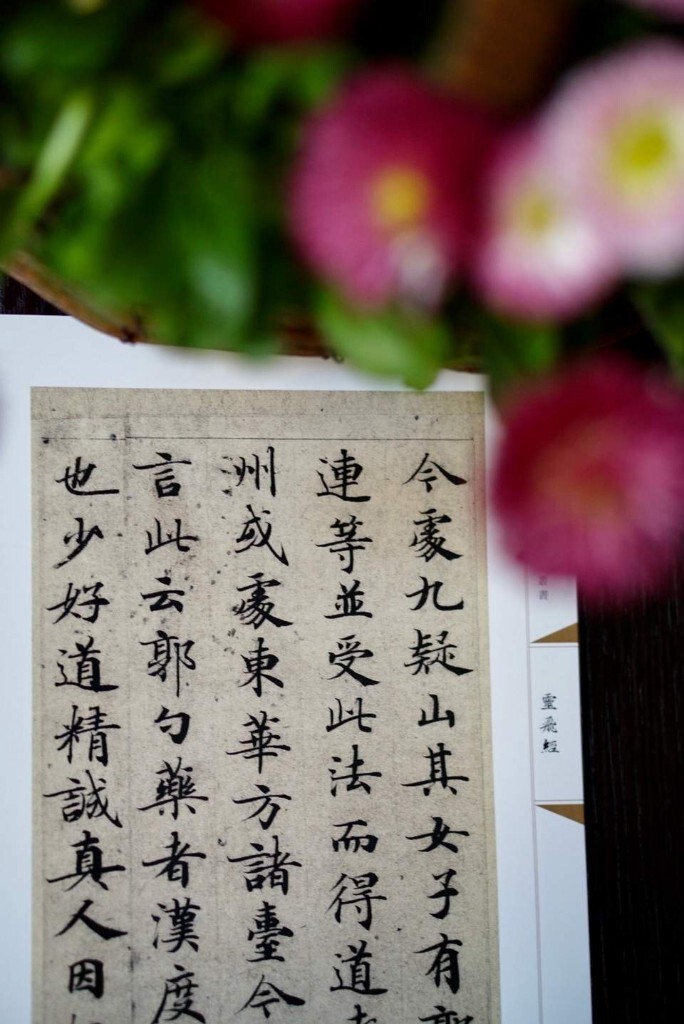 今處九疑山其女子有
連等並受此法而得道
洲或處東華方諸臺今
言此云郭勺藥者漢度
也少好道精誠真人因
靈飛經